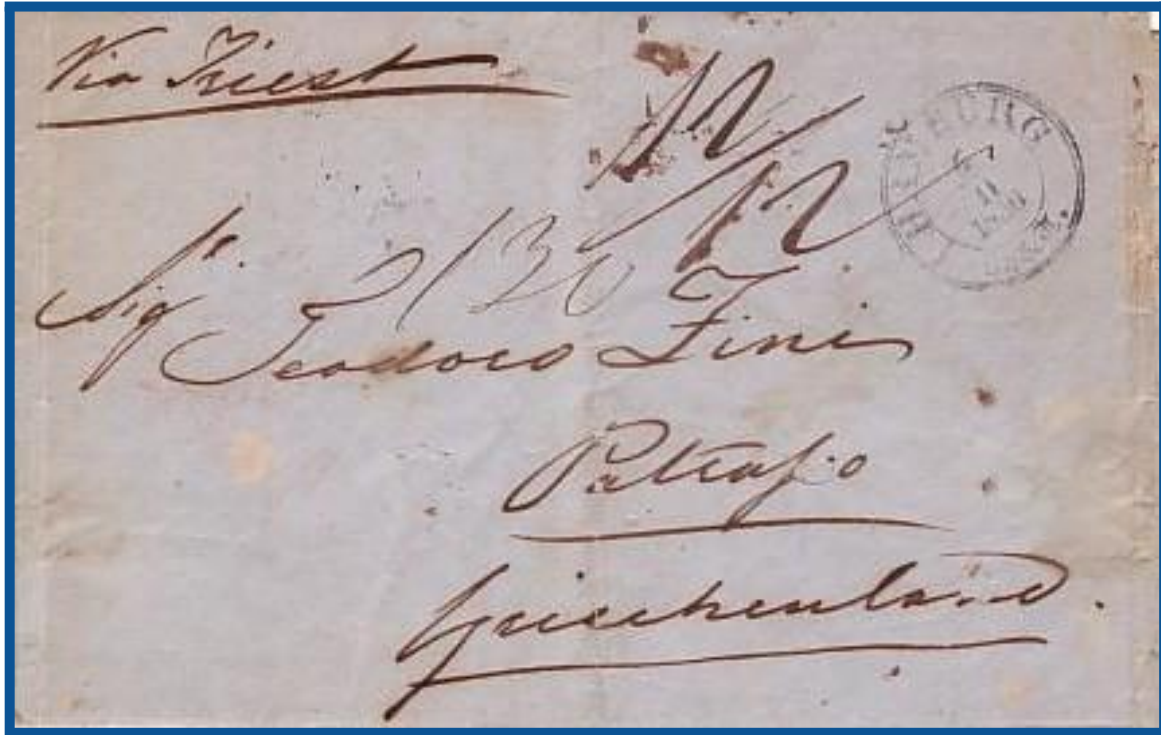 Via Triest
12
12
2/30
Sigr.
Teodoro Zini
Patrasso
Griechenland.